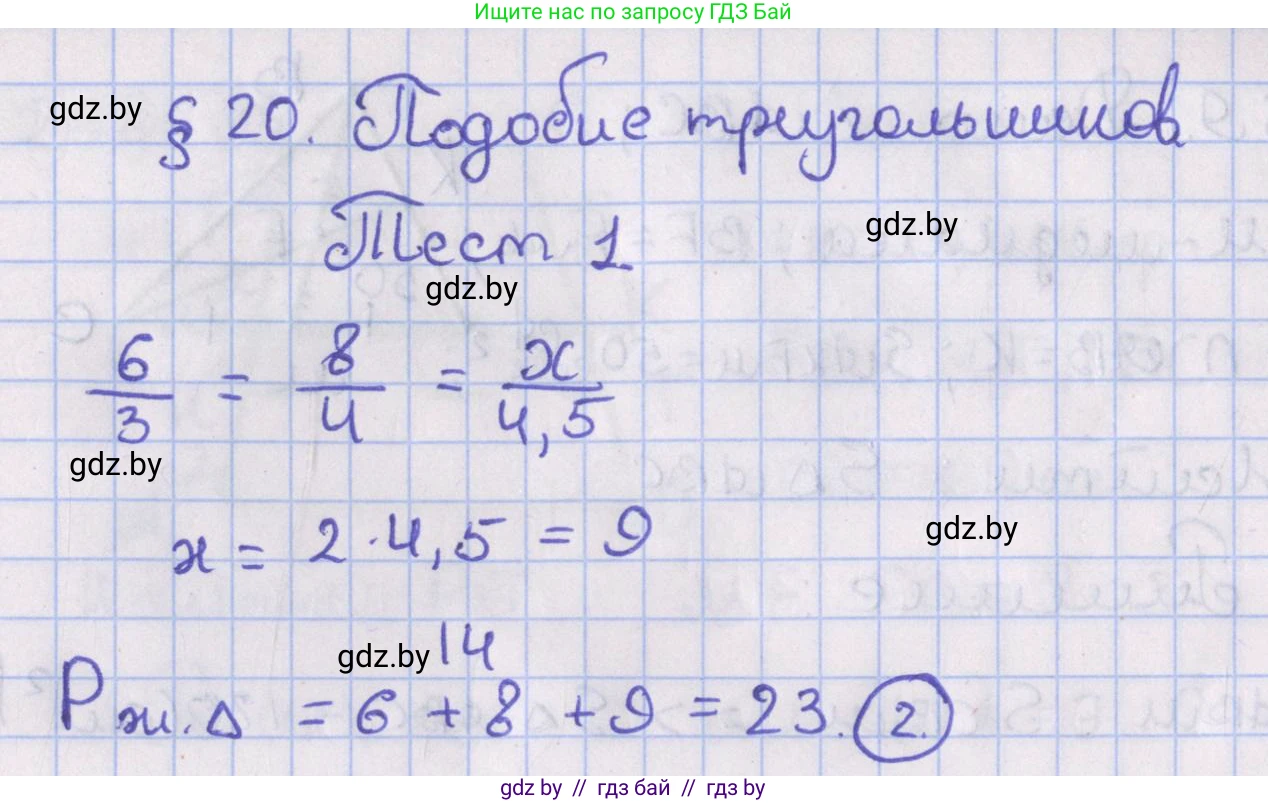 Ищите нас по запросу ГДЗ Бай
gdz.by
§ 20. Подобие треугольников
Тест 1
gdz.by
gdz.by
6/3 = 8/4 = x/4,5
gdz.by
x = 2 · 4,5 = 9
gdz.by
gdz.by
14
P ж. Δ = 6 + 8 + 9 = 23. 2.
gdz.by // гдз бай // gdz.by